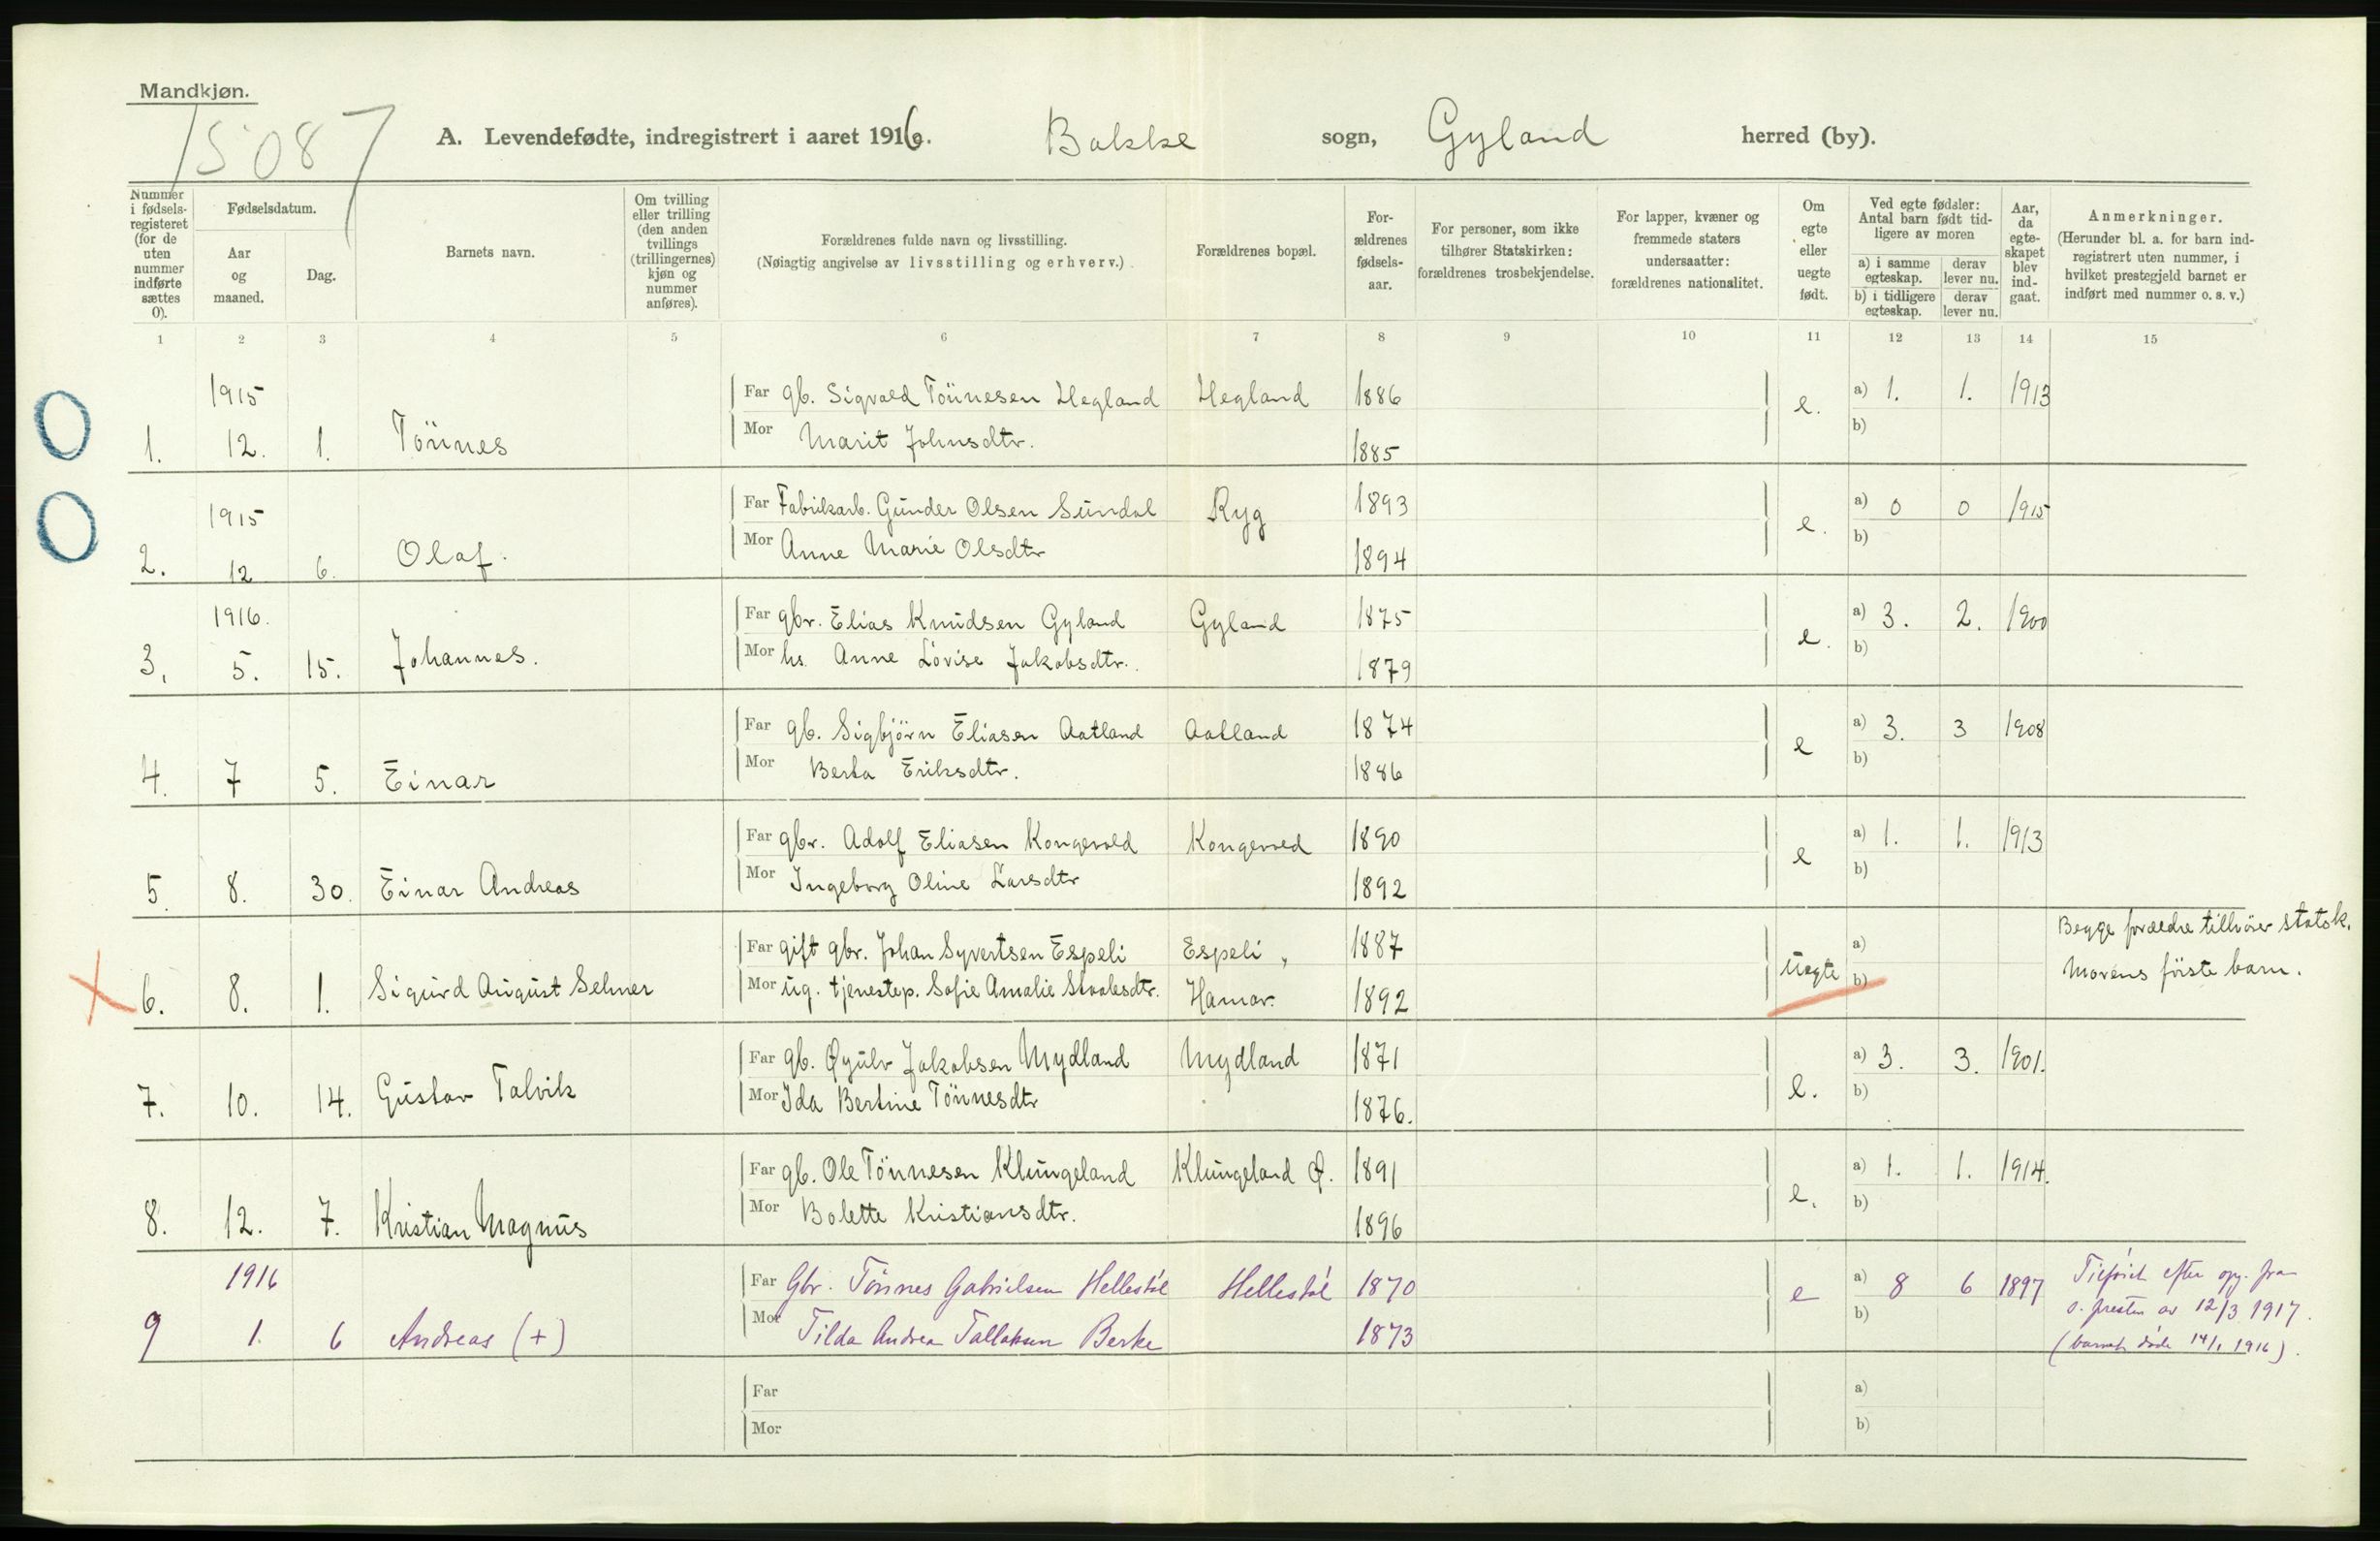 Mandkjøn.
15087
A. Levendefødte, indregistrert i aaret 1916. Bakke sogn, Gyland herred (by).
Nummer i fødsels-registeret (for de uten nummer indførte sættes 0).
Fødselsdatum.
Aar og maaned.
Dag.
Barnets navn.
Om tvilling eller trilling (den anden tvillings (trillingernes) kjøn og nummer anføres).
Forældrenes fulde navn og livsstilling.
(Nøiagtig angivelse av livsstilling og erhverv.)
Forældrenes bopæl.
For-ældrenes fødsels-aar.
For personer, som ikke tilhører Statskirken: forældrenes trosbekjendelse.
For lapper, kvæner og fremmede staters undersaatter: forældrenes nationalitet.
Om egte eller uegte født.
Ved egte fødsler: Antal barn født tid-ligere av moren
a) i samme egteskap. derav lever nu.
b) i tidligere egteskap. derav lever nu.
Aar, da egte-skapet blev ind-gaat.
Anmerkninger.
(Herunder bl. a. for barn ind-registrert uten nummer, i hvilket prestegjeld barnet er indført med nummer o. s. v.)
1 2 3 4 5 6 7 8 9 10 11 12 13 14 15
0
1915 Far gb. Sigvald Tönnesen Hegland Hegland 1886 e. a) 1. 1. 1913
1. 12. 1. Tönnes Mor Marit Johnsdtr. 1885 b)
0
1915 Far Fabrikarb. Gunder Olsen Sundal Ryg 1893 e. a) 0 0 1915
2. 12 6. Olaf. Mor Anne Marie Olsdtr 1894 b)
1916. Far gbr. Elias Knudsen Gyland Gyland 1875 e. a) 3. 2. 1900
3. 5. 15. Johannes. Mor hs. Anne Lovise Jakobsdtr. 1879 b)
Far gb. Sigbjörn Eliasen Aatland Aatland 1874 e a) 3. 3 1908
4. 7 5. Einar Mor Berta Eriksdtr. 1886 b)
Far gbr. Adolf Eliasen Kongevold Kongevold 1890 e a) 1. 1. 1913
5. 8. 30. Einar Andreas Mor Ingeborg Oline Larsdtr 1892 b)
Far gift gbr. Johan Syvertsen Espeli Espeli 1887 uegte a) Begge forældre tilhører statsk.
X 6. 8. 1. Sigurd August Selmer Mor ug. tjenestep. Sofie Amalie Staalesdtr. Hamar. 1892 b) Morens förste barn.
Far gb. Øyulv Jakobsen Mydland Mydland 1871 e. a) 3. 3. 1901.
7. 10. 14. Gustav Talvik Mor Ida Bertine Tönnesdtr 1876. b)
Far gb. Ole Tönnesen Klungeland Klungeland Ø. 1891 e. a) 1. 1. 1914.
8. 12. 7. Kristian Magnus Mor Bolette Kristiansdtr. 1896 b)
1916 Far Gbr. Tönnes Gabrielsen Hellestøl Hellestøl 1870 e a) 8 6 1897 Tilföiet efter opg. fra
9 1. 6 Andreas (+) Mor Tilda Andrea Tallaksen Berke 1873 b) s. presten av 12/3 1917.
(barnet døde 14/1 1916).
Far a)
Mor b)